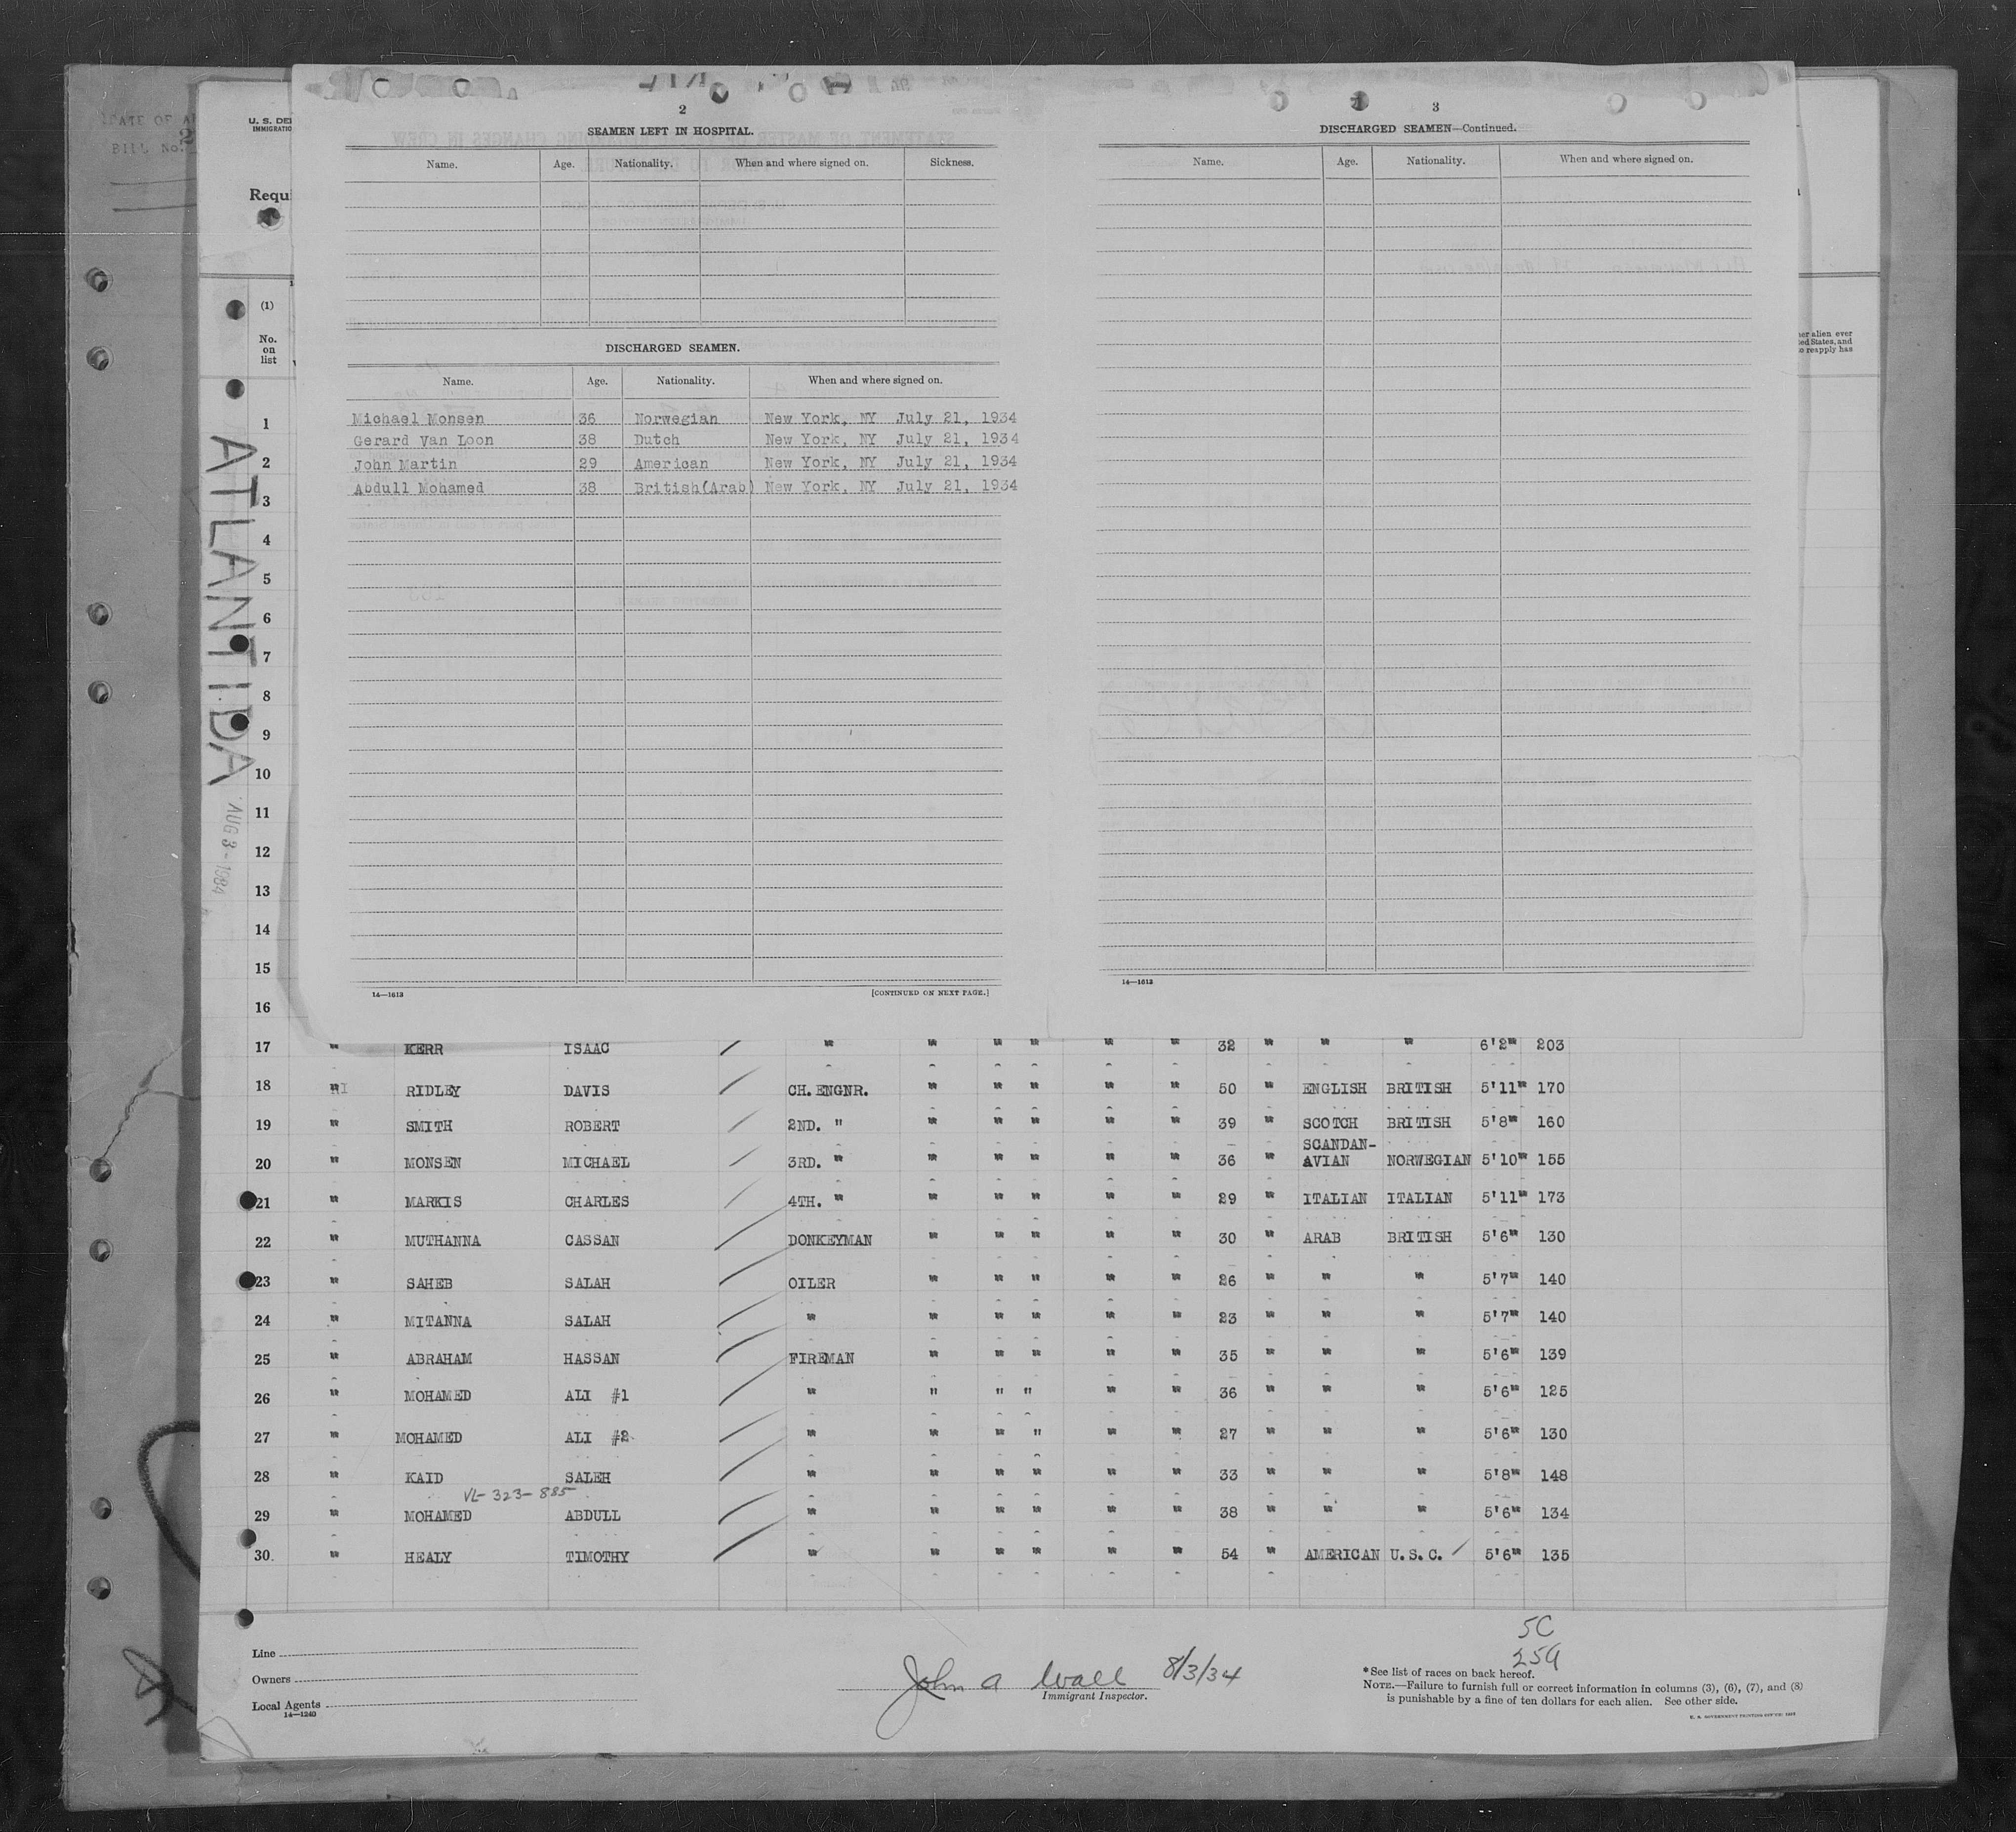 STATE OF A
2
BILL No.
U. S. DEP
IMMIGRATIO
Requi
(1)
No.
on
list
ATLANTIDA
AUG 3 - 1934
2
SEAMEN LEFT IN HOSPITAL.
Name. Age. Nationality. When and where signed on. Sickness.
DISCHARGED SEAMEN.
Name. Age. Nationality. When and where signed on.
Michael Monsen 36 Norwegian New York, NY July 21, 1934
Gerard Van Loon 38 Dutch New York, NY July 21, 1934
John Martin 29 American New York, NY July 21, 1934
Abdull Mohamed 38 British(Arab) New York, NY July 21, 1934
14—1613 [CONTINUED ON NEXT PAGE.]
3
DISCHARGED SEAMEN—Continued.
Name. Age. Nationality. When and where signed on.
14—1613
her alien ever
ted States, and
to reapply has
1
2
3
4
5
6
7
8
9
10
11
12
13
14
15
16
17 " KERR ISAAC " " " " " " 32 " " " 6'2" 203
18 " RIDLEY DAVIS CH. ENGNR. " " " " " 50 " ENGLISH BRITISH 5'11" 170
19 " SMITH ROBERT 2ND. " " " " " " 39 " SCOTCH BRITISH 5'8" 160
SCANDAN-
20 " MONSEN MICHAEL 3RD. " " " " " " 36 " AVIAN NORWEGIAN 5'10" 155
21 " MARKIS CHARLES 4TH. " " " " " " 29 " ITALIAN ITALIAN 5'11" 173
22 " MUTHANNA CASSAN DONKEYMAN " " " " " 30 " ARAB BRITISH 5'6" 130
23 " SAHEB SALAH OILER " " " " " 26 " " " 5'7" 140
24 " MITANNA SALAH " " " " " " 23 " " " 5'7" 140
25 " ABRAHAM HASSAN FIREMAN " " " " " 35 " " " 5'6" 139
26 " MOHAMED ALI #1 " " " " " " 36 " " " 5'6" 125
27 " MOHAMED ALI #2 " " " " " " 27 " " " 5'6" 130
28 " KAID SALEH " " " " " " 33 " " " 5'8" 148
VL-323-885
29 " MOHAMED ABDULL " " " " " " 38 " " " 5'6" 134
30. " HEALY TIMOTHY " " " " " " 54 " AMERICAN U.S.C. 5'6" 135
5C
25A
Line
Owners
Local Agents
14—1240
John A Wall 8/3/34
Immigrant Inspector.
*See list of races on back hereof.
NOTE.—Failure to furnish full or correct information in columns (3), (6), (7), and (8)
is punishable by a fine of ten dollars for each alien. See other side.